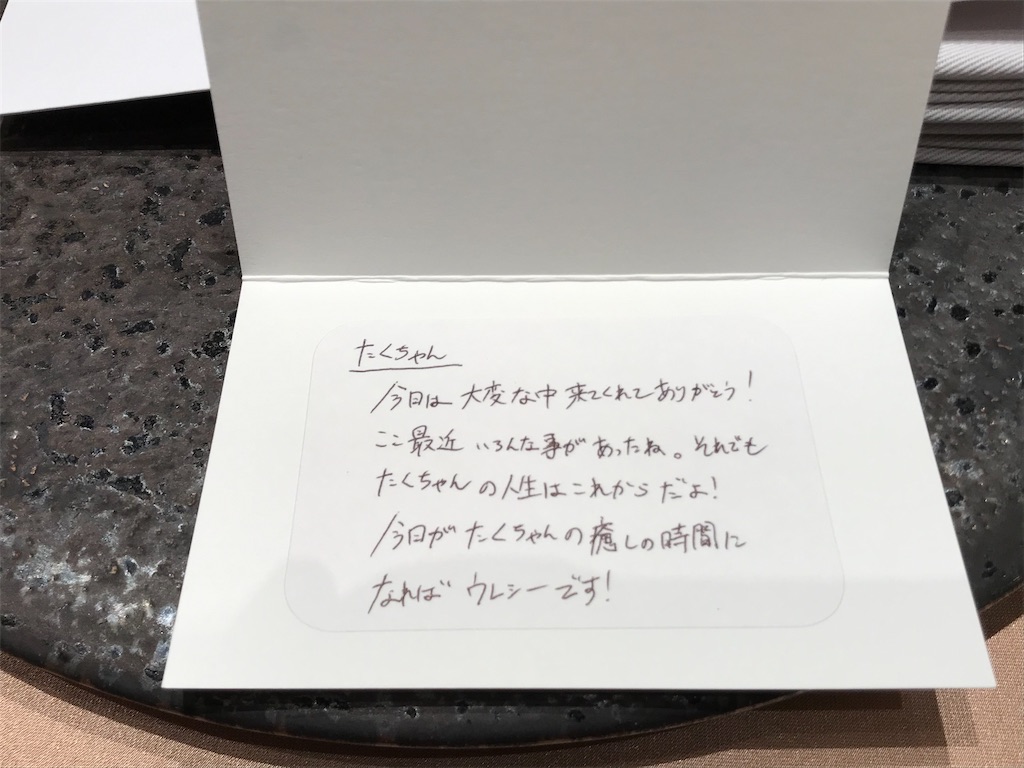 たくちゃん
今日は大変な中来てくれてありがとう！
ここ最近いろんな事があったね。それでも
たくちゃんの人生はこれからだよ！
今日がたくちゃんの癒しの時間に
なればウレシーです！